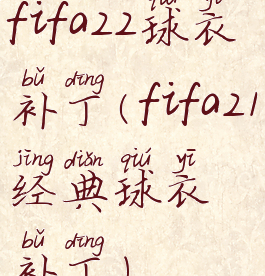 fifa22球衣
bǔ dīng
补丁(fifa21
jīng diǎn qiú yī
经典球衣
bǔ dīng
补丁)